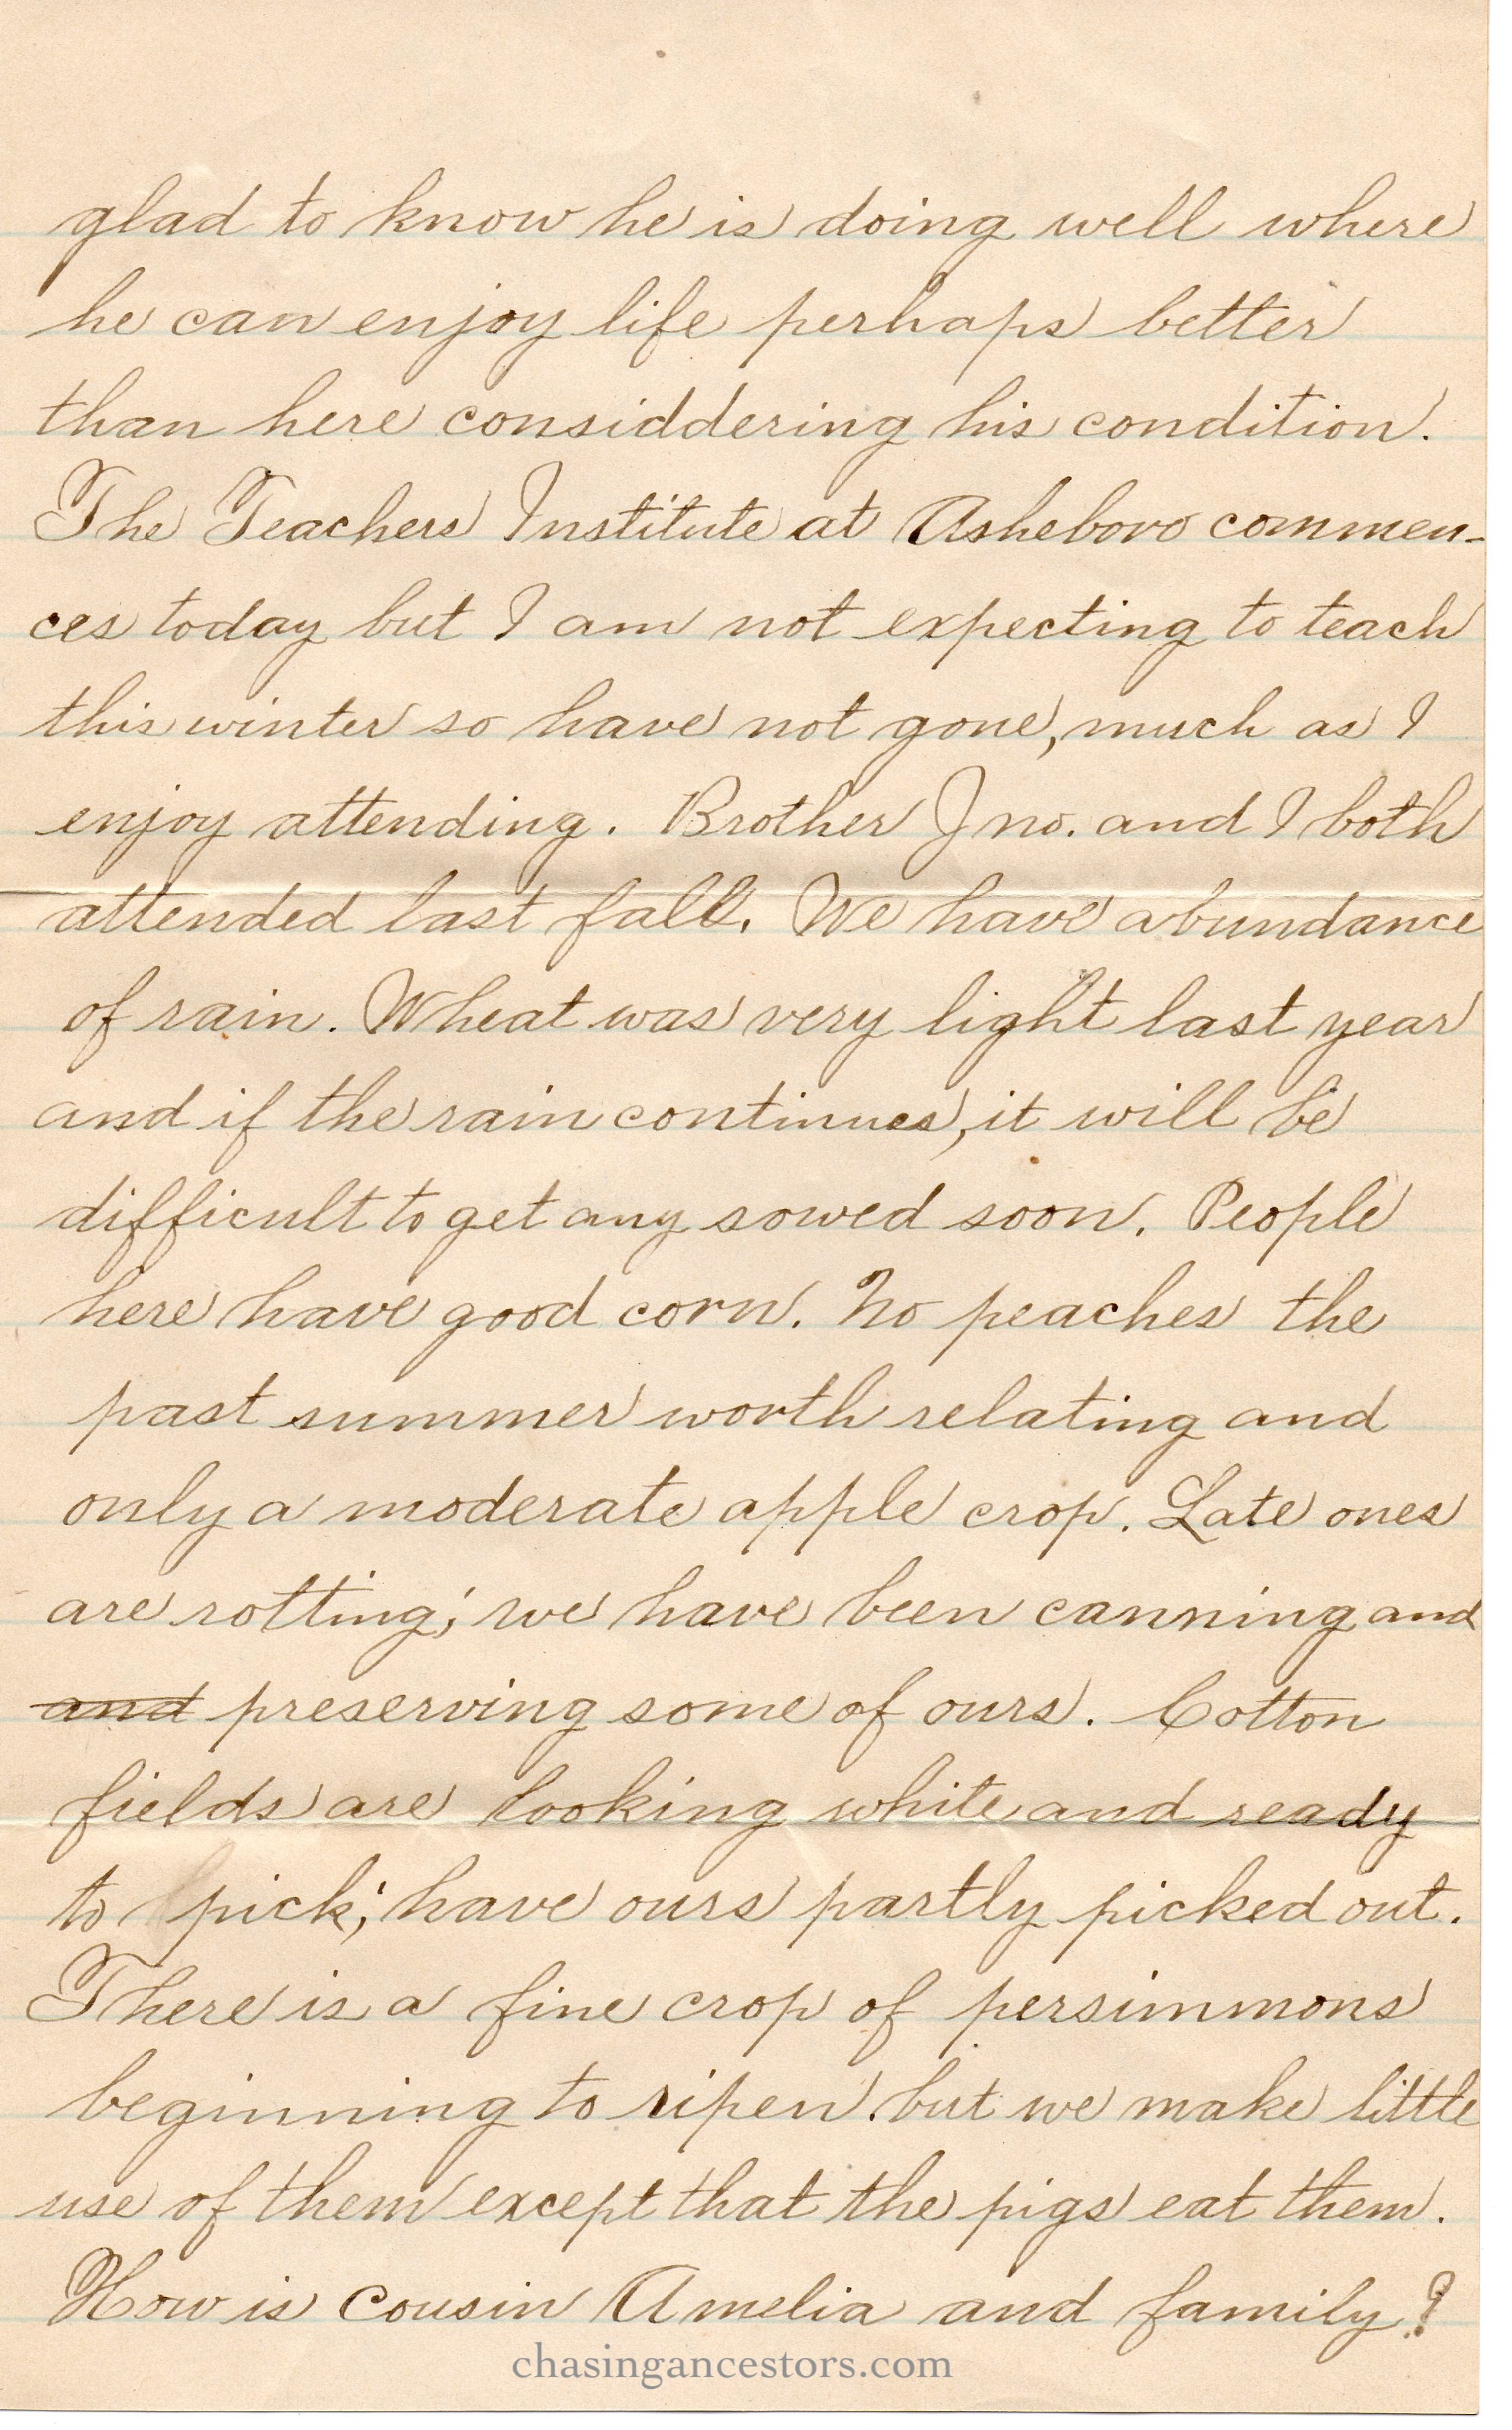 glad to know he is doing well where
he can enjoy life perhaps better
than here considdering his condition.
The Teachers Institute at Asheboro commen-
ces today but I am not expecting to teach
this winter so have not gone, much as I
enjoy attending. Brother Jno. and I both
attended last fall. We have abundance
of rain. Wheat was very light last year
and if the rain continues, it will be
difficult to get any sowed soon. People
here have good corn. No peaches the
past summer worth relating and
only a moderate apple crop. Late ones
are rotting; we have been canning and
and preserving some of ours. Cotton
fields are looking white and ready
to pick; have ours partly picked out.
There is a fine crop of persimmons
beginning to ripen but we make little
use of them except that the pigs eat them.
How is cousin Amelia and family?
chasingancestors.com